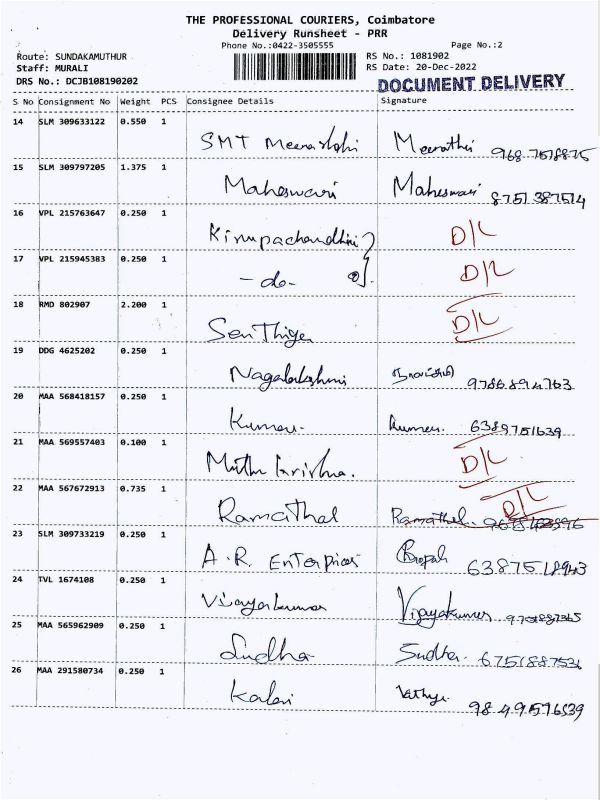 THE PROFESSIONAL COURIERS, Coimbatore
Delivery Runsheet - PRR
Phone No.:0422-3505555 Page No.:2
Route: SUNDAKAMUTHUR RS No.: 1081902
Staff: MURALI RS Date: 20-Dec-2022
DRS No.: DCJB108190202 DOCUMENT DELIVERY
S No Consignment No Weight PCS Consignee Details Signature
14 SLM 309633122 0.550 1
SMT
15 SLM 309797205 1.375 1
Maheswari Maheswari
16 VPL 215763647 0.250 1
Kirupachandhini D/L
17 VPL 215945383 0.250 1
-do- D/L
18 RMD 802907 2.200 1
D/L
19 DDG 4625202 0.250 1
Nagalakshmi 9786894763
20 MAA 568418157 0.250 1
Kumar. Kumar. 6389751639
21 MAA 569557403 0.100 1
Muthu krishna. D/L
22 MAA 567672913 0.735 1
Ramathal Ramathal. D/L
23 SLM 309733219 0.250 1
A.R. Enterprises
24 TVL 1674108 0.250 1
Vijayakumar Vijayakumar
25 MAA 565962909 0.250 1
Sudha Sudha. 6751887536
26 MAA 291580734 0.250 1
Kalai 9849576539